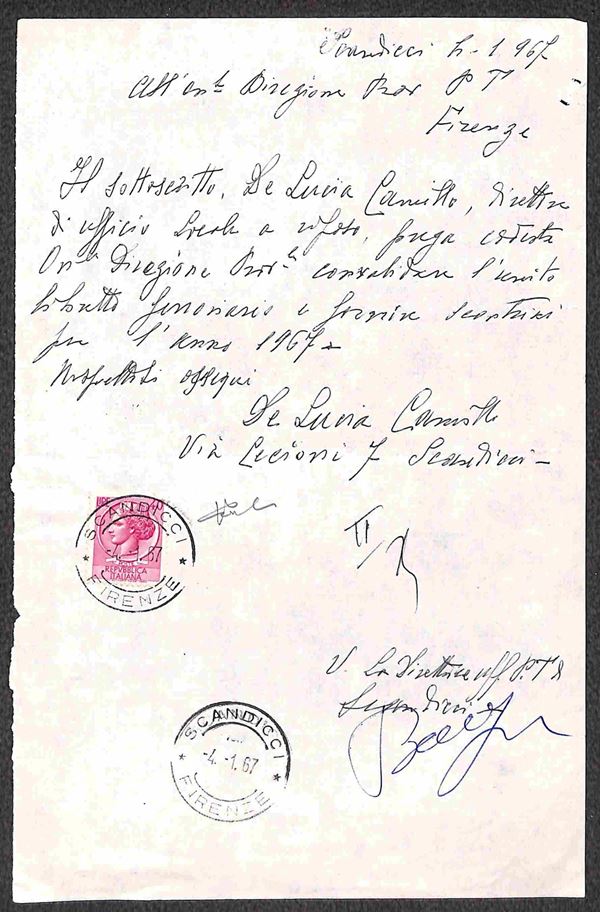 Scandicci 4-1.967
All'On.le Direzione Prov P T
Firenze
Il sottoscritto, De Lucia Camillo, direttore
d'ufficio Locale a riposo, prega codesta
On.le Direzione Prov.le convalidare l'unito
libretto ferroviario e fornire scontrini
per l'anno 1967 -
Rispettosi ossequi
De Lucia Camillo
Via Cecioni 7 Scandicci -
LIRE
SCANDICCI
-4.-1.67
REPUBBLICA
ITALIANA
FIRENZE
V. La Direttrice uff. P.T. di
Scandicci
SCANDICCI
-4.-1.67
FIRENZE